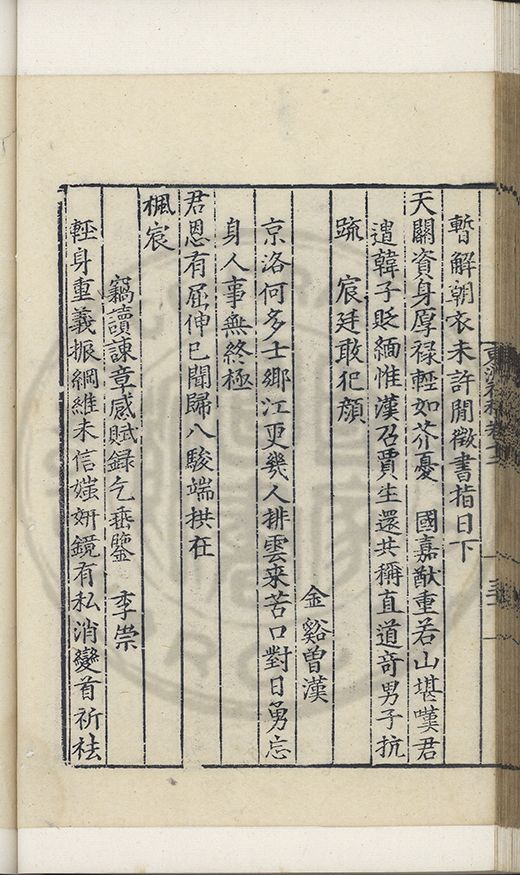 暫解朝衣未許閒徵書指日下
天關資身厚祿輕如芥憂　國嘉猷重若山堪嘆君
遣韓子貶緬惟漢召賈生還共稱直道奇男子抗
疏　宸廷敢犯顏
金谿曾漢
京洛何多士鄉江更幾人排雲来苦口對日勇忘
身人事無終極
君恩有屈伸已聞歸八駿端拱在
楓宸
竊讀諫章感賦録乞垂鑒　季崇
輕身重義振綱維未信媸妍鏡有私消變首祈袪